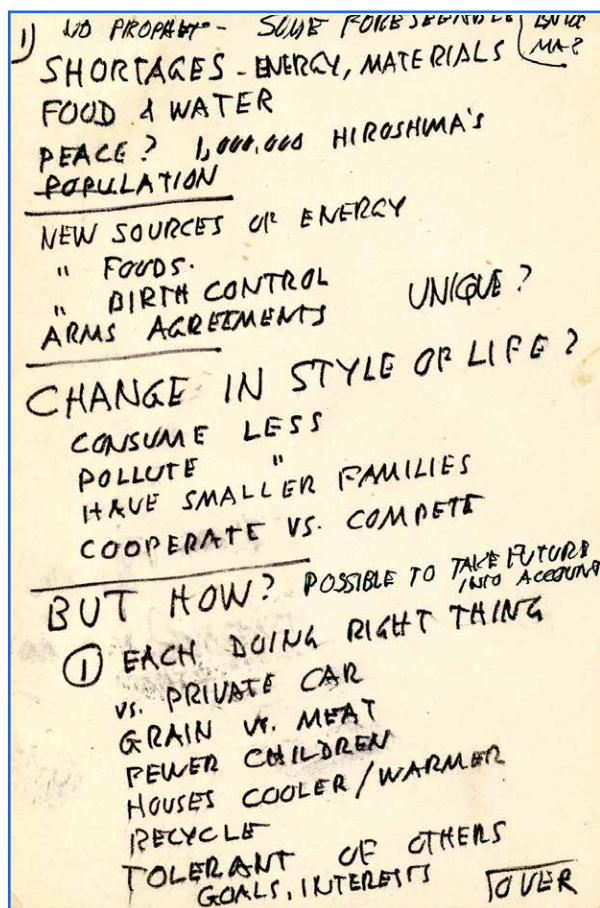 1) NO PROPHET - SOME FORESEEABLE
SHORTAGES - ENERGY, MATERIALS
FOOD & WATER
PEACE? 1,000,000 HIROSHIMA'S
POPULATION
NEW SOURCES OF ENERGY
" FOODS.
" BIRTH CONTROL
UNIQUE?
ARMS AGREEMENTS
CHANGE IN STYLE OF LIFE?
CONSUME LESS
POLLUTE "
HAVE SMALLER FAMILIES
COOPERATE VS. COMPETE
BUT HOW? POSSIBLE TO TAKE FUTURE
INTO ACCOUNT
① EACH DOING RIGHT THING
VS. PRIVATE CAR
GRAIN VS. MEAT
FEWER CHILDREN
HOUSES COOLER/WARMER
RECYCLE
TOLERANT OF OTHERS
GOALS, INTERESTS
OVER